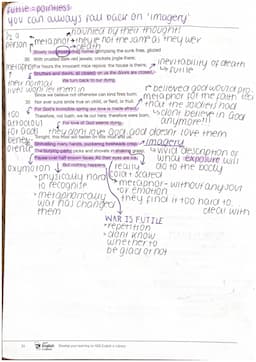 futile = pointless
you can always fall back on 'imagery'
haunted by their thoughts
is a person
metaphor → they're not the same as they wer
death
glimpsing the sunk fires, glozed
With crusted dark-red jewels; crickets jingle there;
For hours the innocent mice rejoice: the house is theirs;
Shutters and doors, all closed: on us the doors are closed,—
We turn back to our dying.
inevitability of death
→ futile
metaphor
Since we believe not otherwise can kind fires burn;
Nor ever suns smile true on child, or field, or fruit.
For God's invincible spring our love is made afraid;
Therefore, not loath, we lie out here; therefore were born,
For love of God seems dying.
believed god would
metaphor for the faith
that the soldiers had
→ dont believe in God
anymore!!!
too
atrocious
for God
they dont love God, God doesn't love them
→ imagery
Shrivelling many hands, puckering foreheads crisp.
The burying-party, picks and shovels in shaking grasp,
Pause over half-known faces. All their eyes are ice,
But nothing happens.
→ vivid description of
what exposure will
do to the body
oxymoron
really
cold + scared
→ physically hard
to recognise
→ metaphorically
war has changed
them
→ metaphor → without any joy
or emotion
they find it too hard to
deal with
WAR IS FUTILE
→ repetition
→ dont know
whether to
be glad or not